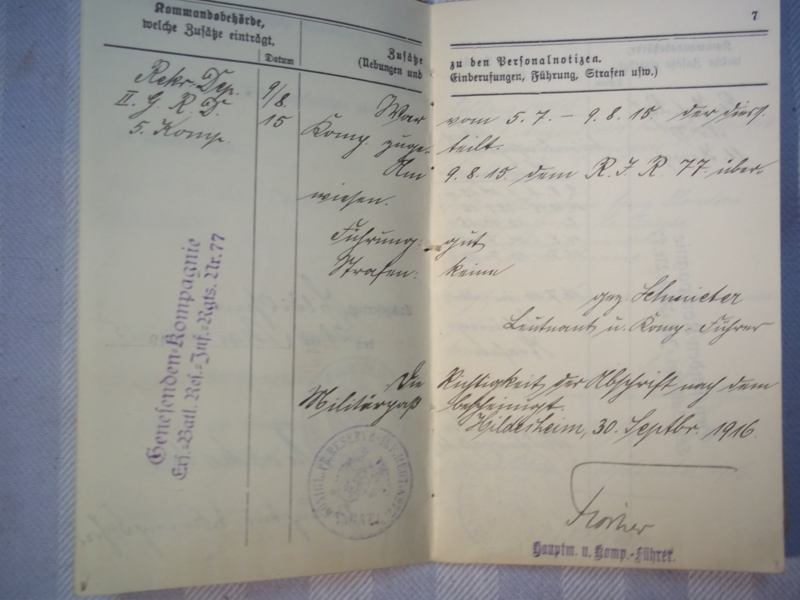 7
Kommandobehörde,
welche Zusätze einträgt.
Datum
Zusätze zu den Personalnotizen.
(Uebungen und Einberufungen, Führung, Strafen usw.)
Rekr. Dep.
II. G. R. D.
5. Komp.
9/8.
15
War vom 5.7. – 9.8.15. der diess.
Komp. zuge- teilt.
Am 9.8.15. dem R. I. R. 77. über-
wiesen.
Führung: gut
Strafen: keine
gez. Schmieter
Leutnant u. Komp. Führer
Die Richtigkeit der Abschrift nach dem
Militärpaß bescheinigt.
Hildesheim, 30. Septbr. 1916.
Hauptm. u. Komp.-Führer.
Genesenden-Kompagnie
Ers.-Batl. Res.-Inf.-Rgts. Nr. 77